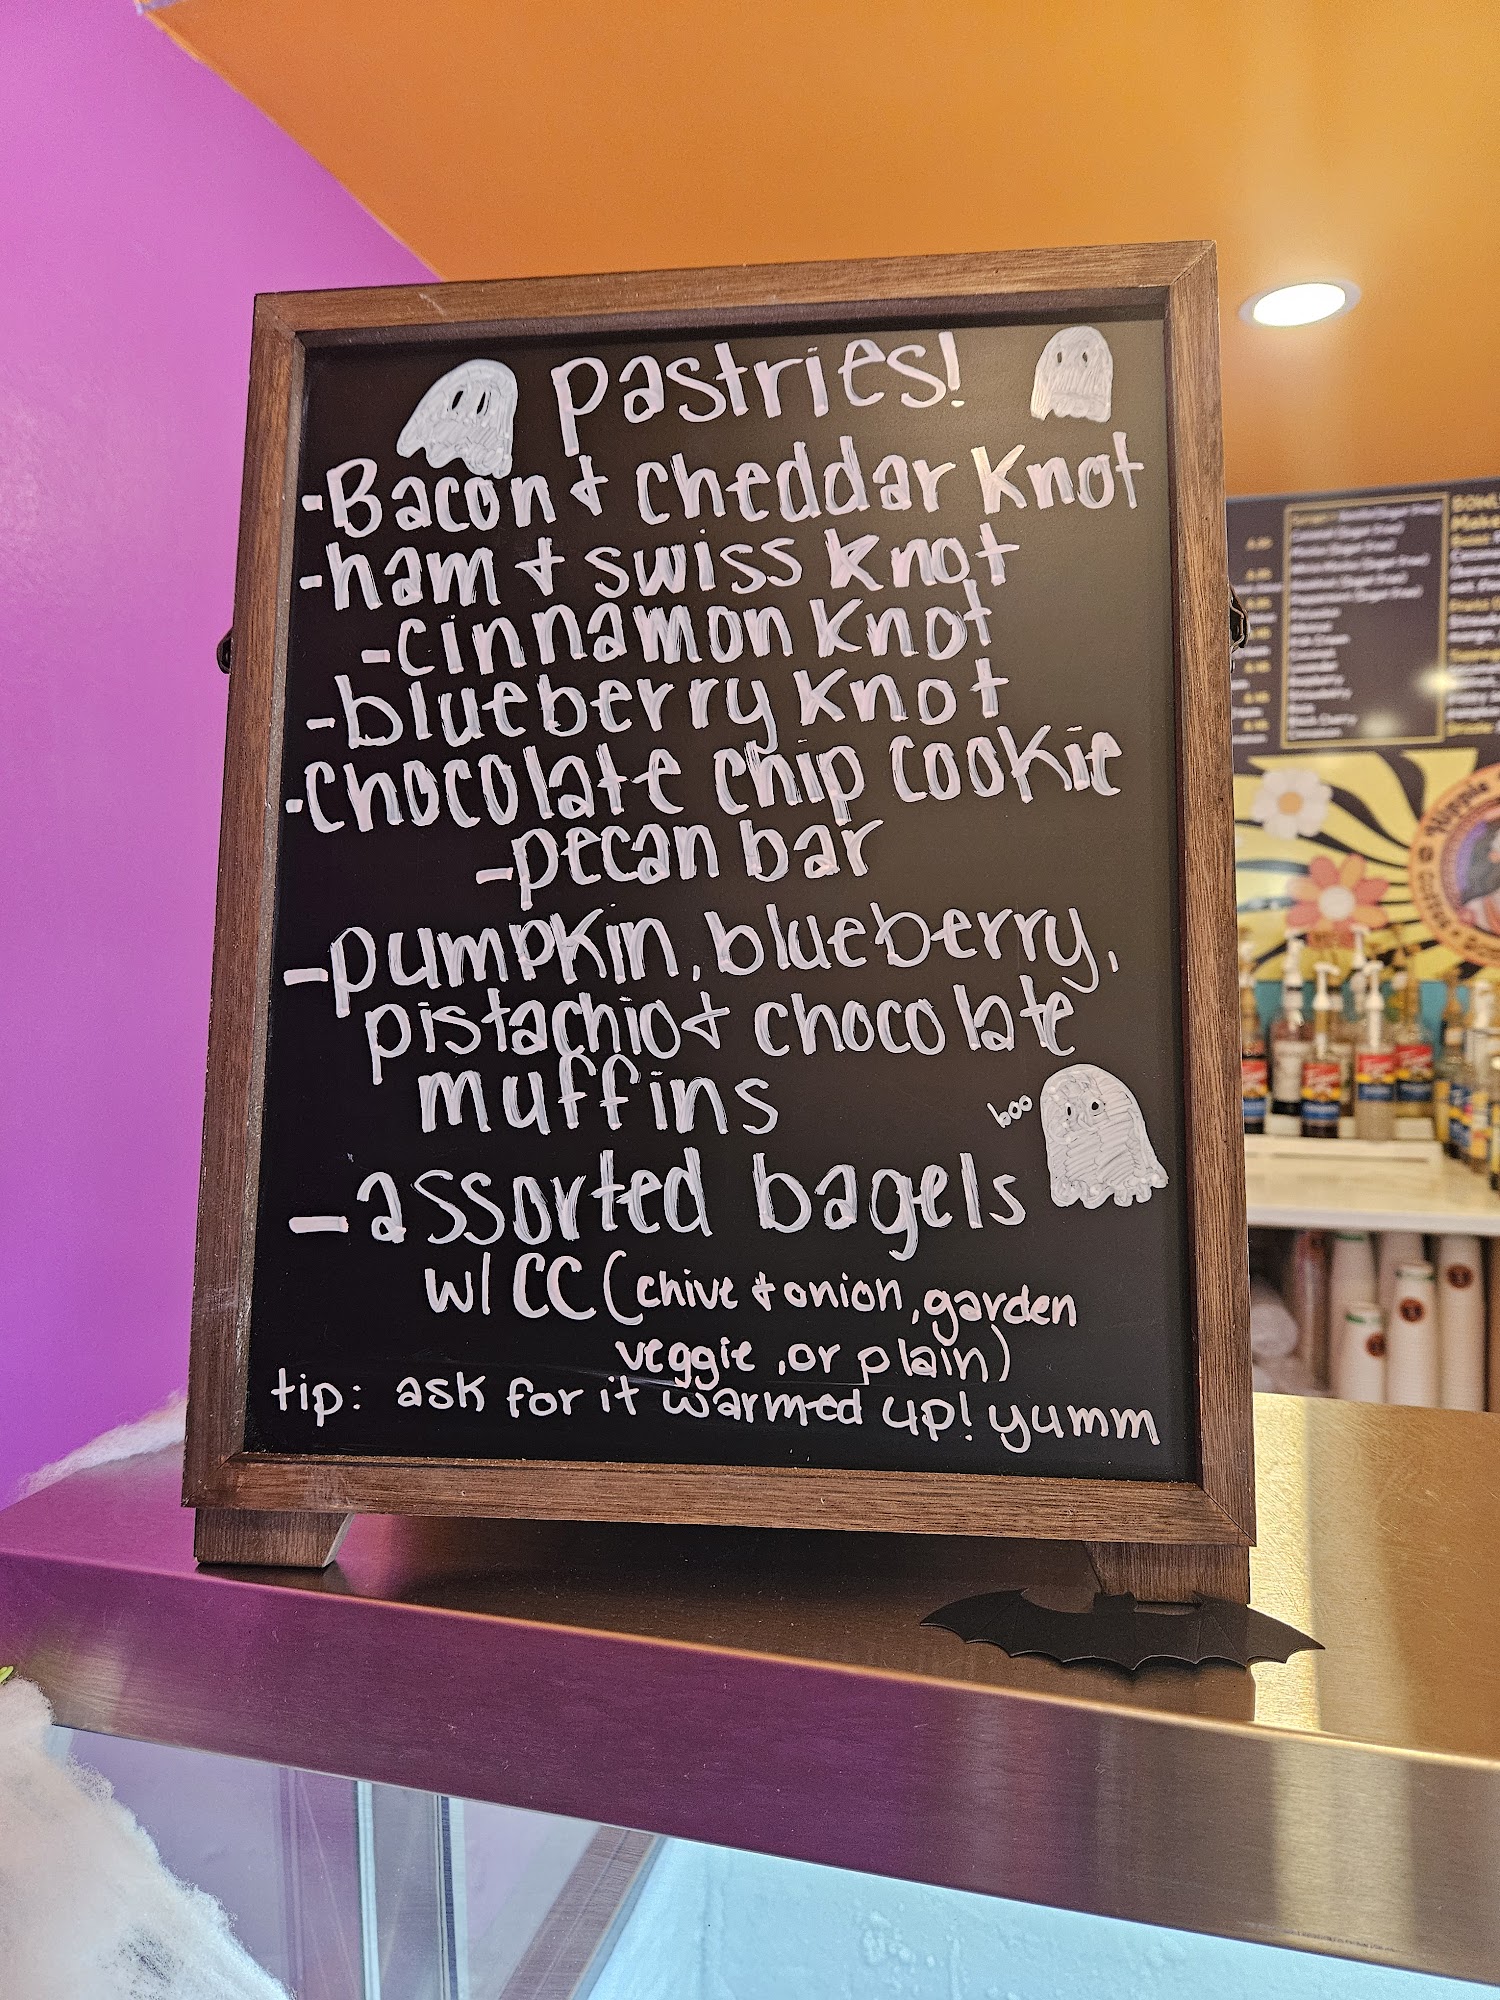 pastries!
-Bacon & cheddar Knot
-ham & swiss Knot
-cinnamon Knot
-blueberry Knot
-chocolate chip cookie
-pecan bar
-pumpkin, blueberry,
pistachio & chocolate
muffins
boo
-assorted bagels
w/ CC (chive & onion, garden
veggie, or plain)
tip: ask for it warmed up! yumm